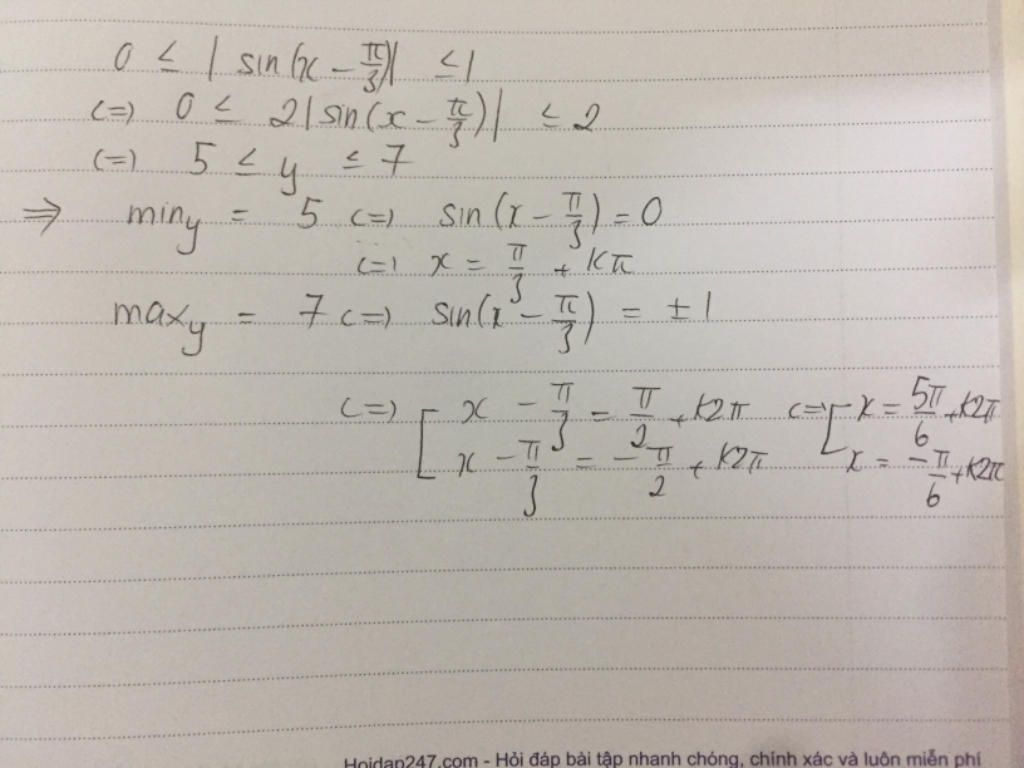 0 ≤ | sin(x - π/3)| ≤ 1
<=> 0 ≤ 2|sin(x - π/3)| ≤ 2
<=> 5 ≤ y ≤ 7
=> min y = 5 <=> sin(x - π/3) = 0
<=> x = π/3 + kπ
max y = 7 <=> sin(x - π/3) = ±1
<=> [ x - π/3 = π/2 + k2π <=> [ x = 5π/6 + k2π
x - π/3 = -π/2 + k2π x = -π/6 + k2π
Hoidap247.com - Hỏi đáp bài tập nhanh chóng, chính xác và luôn miễn phí